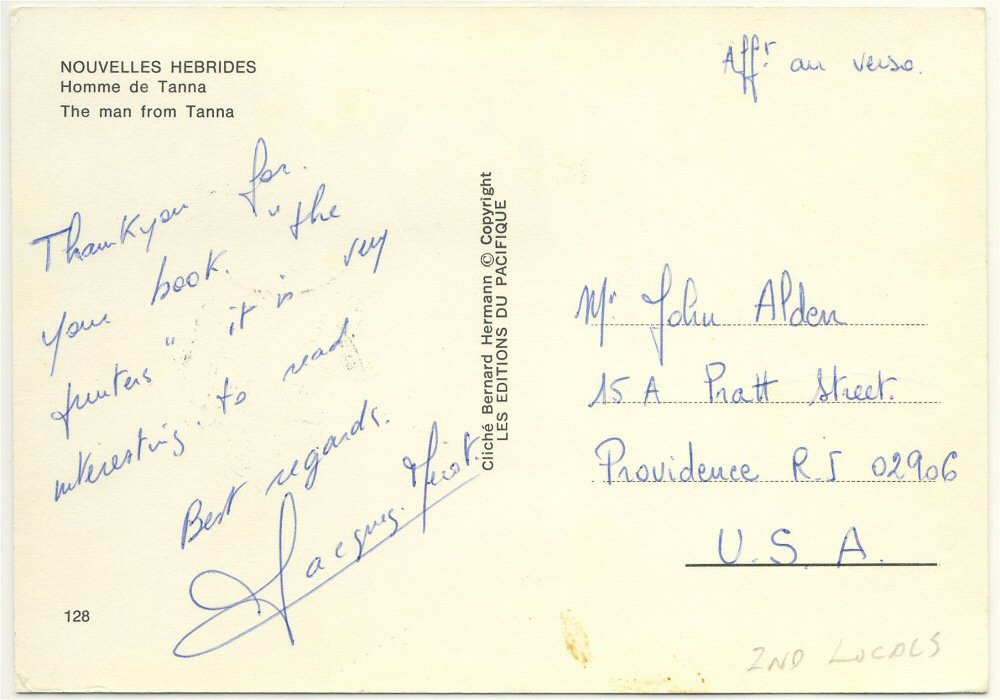 NOUVELLES HEBRIDES
Homme de Tanna
The man from Tanna
Thankyou for
your book. "the
hunters" it is very
interesting to read.
Best regards.
Jacques.
128
Cliché Bernard Hermann © Copyright
LES EDITIONS DU PACIFIQUE
Affr. au verso.
Mr John Alden
15 A Pratt Street.
Providence R.I 02906
U.S.A.
2ND LOCALS